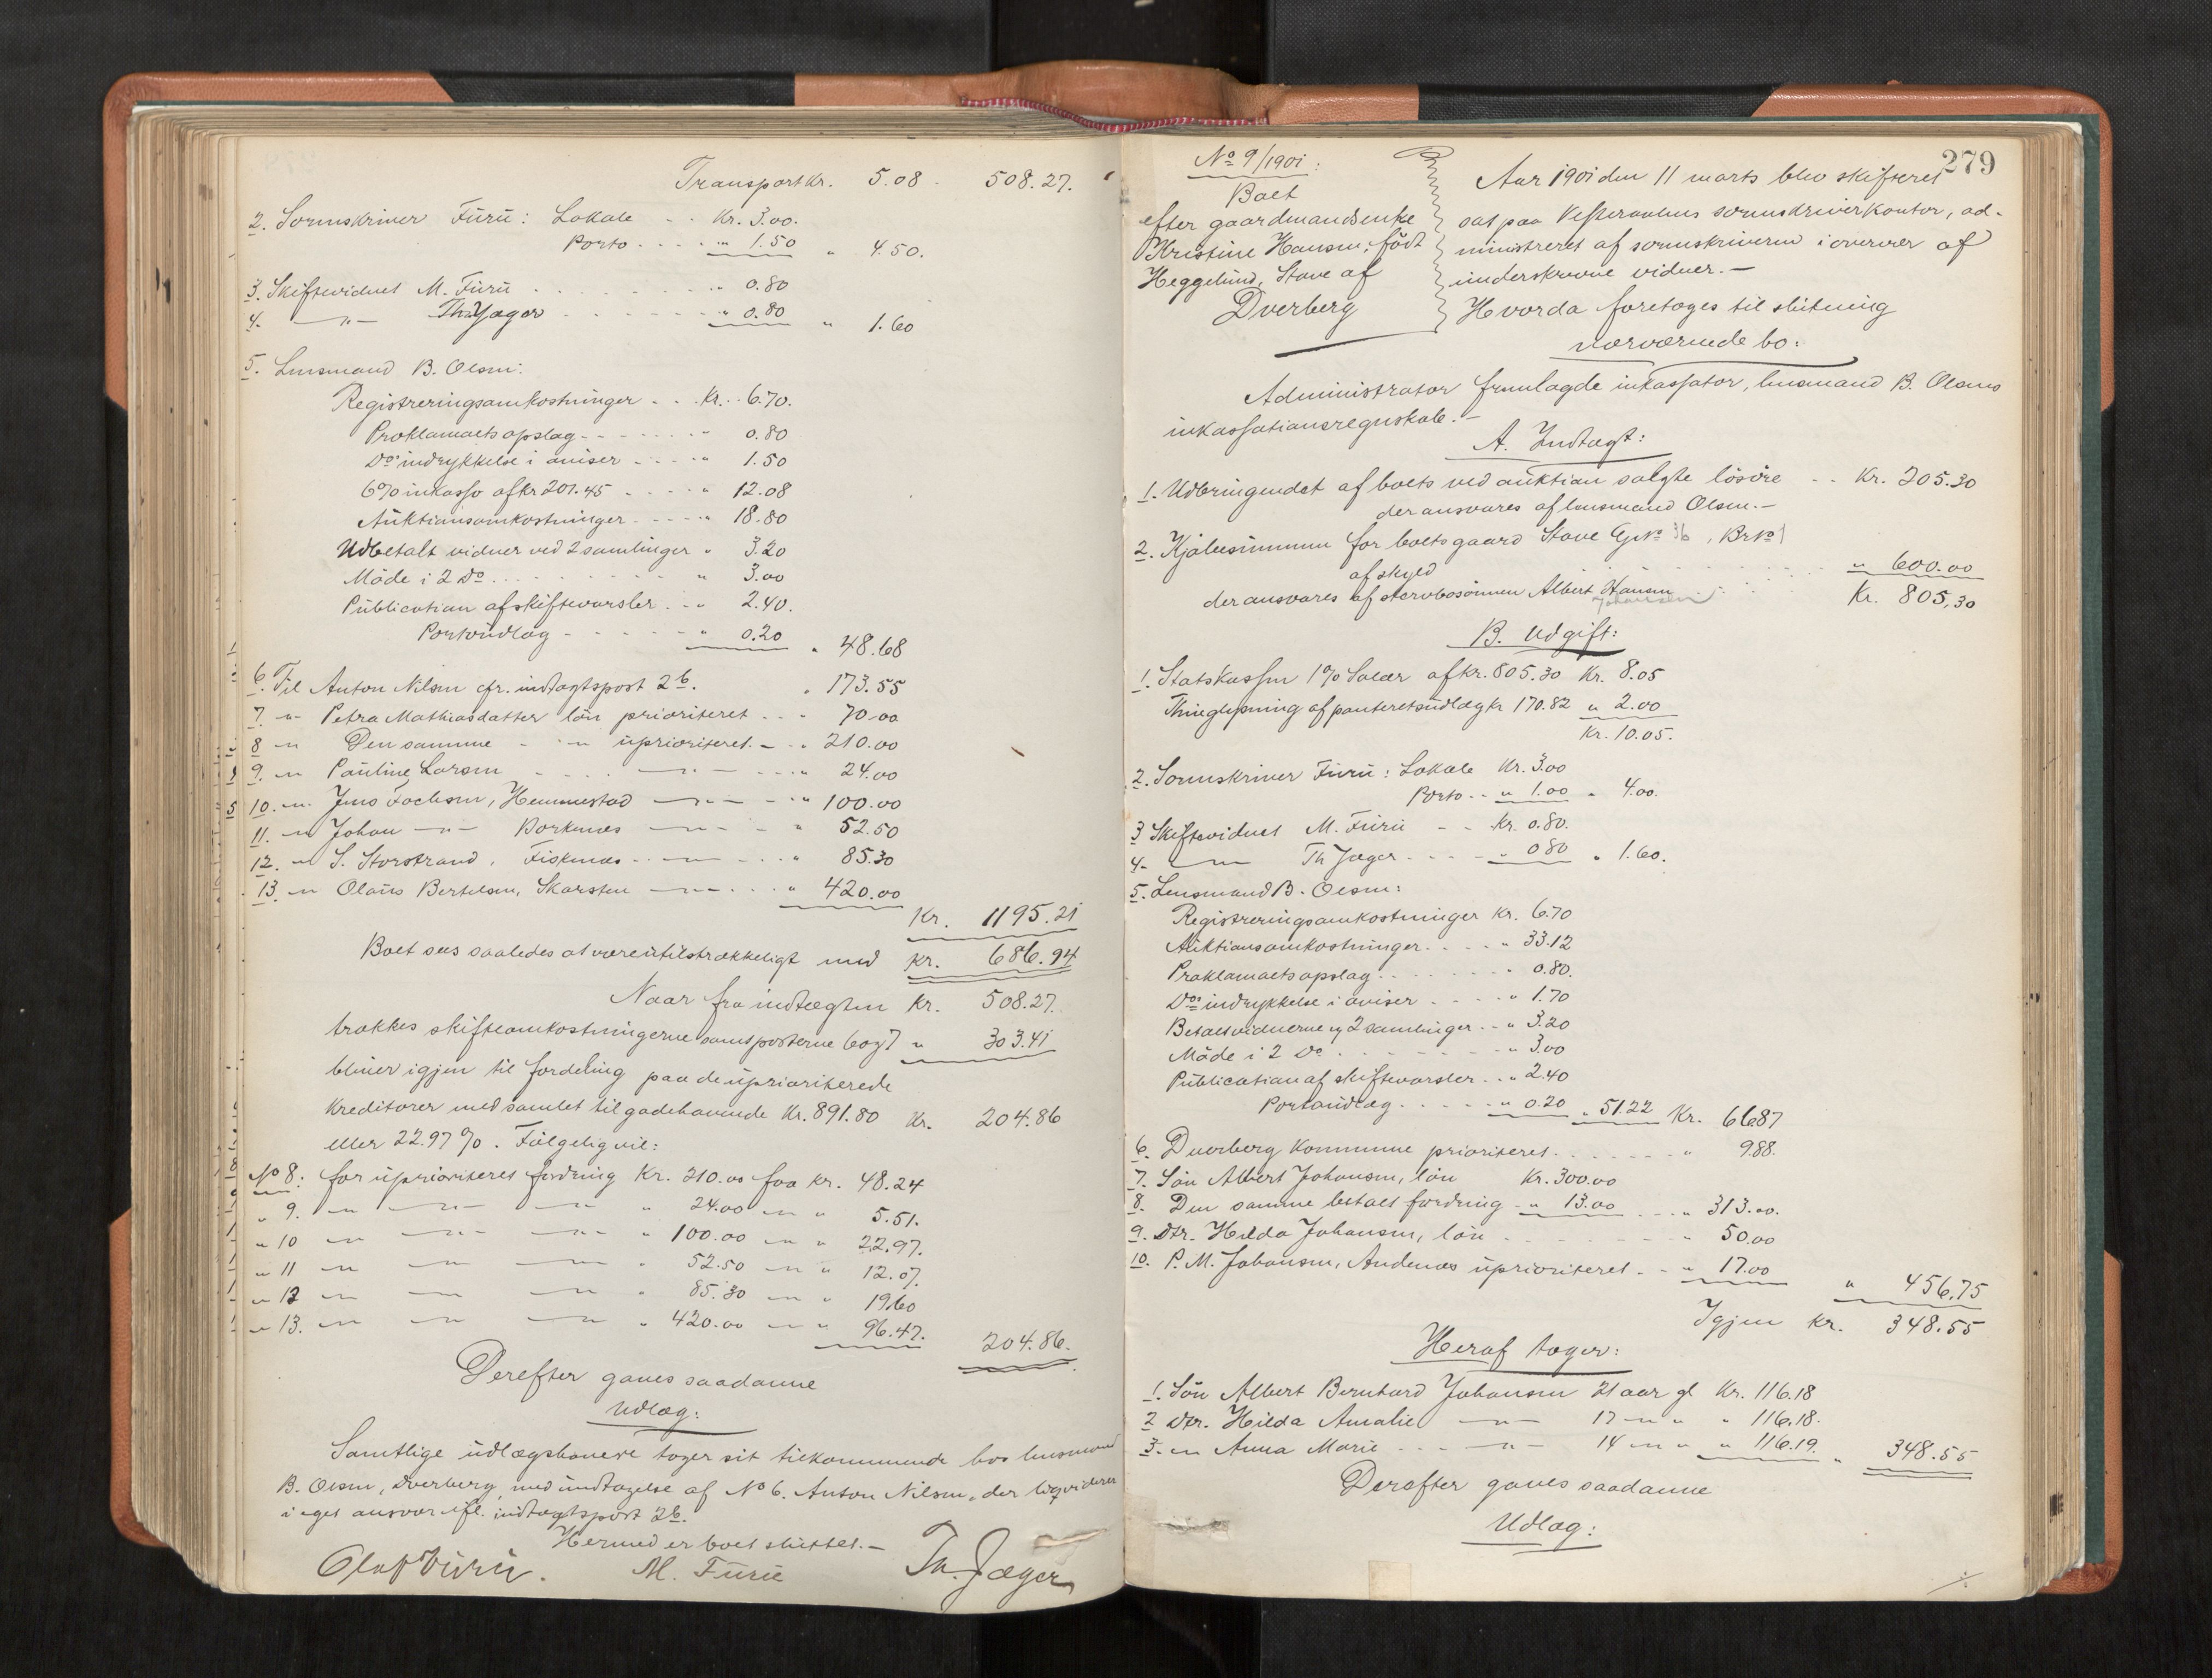 Transport Kr. 5.08 - 508.27.
2. Sorenskriver Furu: Lokale - - Kr. 3.00.
Porto - - - - " 1.50 " 4.50.
3. Skiftevidnet M. Furu - - - " 0.80
4. — " — Th. Jæger - - - " 0.80 " 1.60
5. Lensmand B. Olsen:
Registreringsomkostninger - - Kr. 6.70.
Proklamaets opslag - - - - " 0.80
Do indrykkelse i aviser - - - " 1.50
6% inkasso af kr 201.45 - - - " 12.08
Auktionsomkostninger - - - - " 18.80
Udbetalt vidner ved 2 samlinger " 3.20
Møde i 2 Do - - - - " 3.00
Publication af skiftevarsler - - " 2.40.
Portoudlæg - - - - " 0.20 " 48.68
6. Til Anton Nilsen cfr. indtægtspost 2b. " 173.55
7. " Petra Mathiasdatter løn prioriteret - - " 70.00
8 " Den samme - " uprioriteret - " 210.00
9. " Pauline Larsen - - — " — - - " 24.00
10. " Jens Fochsen, Hemmestad — " — - " 100.00
11. " Johan — " — Borkenes — " — - " 52.50
12. " S. Storstrand, Fiskenes - - — " — - - " 85.30
13 " Olaus Bertelsen, Skarsten — " — - - " 420.00
Kr. 1195.21
Boet sees saaledes at være utilstrækkeligt med Kr. 686.94
Naar fra indtægten Kr. 508.27.
trækkes skifteomkostningerne samt posterne 6 og 7 " 303.41
bliver igjen til fordeling paa de uprioriterede
kreditorer med samlet tilgodehavende Kr. 891.80 Kr. 204.86
eller 22.97%. Følgelig vil:
No 8: for uprioriteret fordring Kr. 210.00 faa Kr. 48.24
" 9. " — " — — " — " 24.00 " " 5.51.
" 10 " — " — — " — " 100.00 " " 22.97.
" 11 " — " — — " — " 52.50 " " 12.07.
" 12 " — " — — " — " 85.30 " " 19.60
" 13. " — " — — " — " 420.00 " " 96.47. 204.86.
Derefter gaves saadanne
Udlæg:
Samtlige udlægshavere tager sit tilkommende hos lensmand
B. Olsen, Dverberg, med undtagelse af No 6. Anton Nilsen, der liqviderer
i eget ansvar ifl. indtægtspost 2b.
Hermed er boet sluttet. —
Olaf Furu. M. Furu Th. Jæger
279
No 9/1901:
Boet
efter gaardmandsenke
Kristine Hansen, født
Heggelund, Stave af
Dverberg
Aar 1901 den 11 marts blev skifteret
sat paa Vesteraalens sorenskriverkontor, ad-
ministreret af sorenskriveren i overvær af
underskrevne vidner. —
Hvorda foretoges til slutning
nærværende bo:
Administrator fremlagde inkassator, lensmand B. Olsens
inkassationsregnskab. —
A. Indtægt:
1. Udbringendet af boets ved auktion solgte løsøre - - Kr. 205.30
der ansvares af lensmand Olsen. —
2. Kjøbesummen for boets gaard Stave Gno , Brno 1
af skyld - - - " 600.00
der ansvares af stervbosønnen Albert Hansen - - Kr. 805,30
Johansen
B. Udgift:
1. Statskassen 1% Salær af kr. 805.30 Kr. 8.05
Thinglysning af panteretsudlæg kr 170.82 " 2.00
Kr. 10.05.
2. Sorenskriver Furu: Lokale Kr. 3.00
Porto - - " 1.00 " 4.00.
3 Skiftevidnet M. Furu - - Kr. 0.80.
4. — " — Th Jæger - - - " 0.80 " 1.60.
5. Lensmand B. Olsen:
Registreringsomkostninger Kr. 6.70
Auktionsomkostninger - - - " 33.12
Proklamaets opslag - - - - " 0.80.
Dos indrykkelse i aviser - - - " 1.70
Betalt vidnerne v 2 samlinger - - " 3.20
Møde i 2 Do - - - - - " 3.00
Publication af skiftevarsler - - " 2.40
Portoudlæg - - - - " 0.20 " 51.22 Kr. 66.87
6. Dverberg kommune prioriteret - - - - " 9.88.
7. Søn Albert Johansen, løn Kr. 300.00
8. Den samme betalt fordring - " 13.00 - - " 313.00.
9. Dtr. Hilda Johansen, løn - - - - " 50.00
10. P. M. Johansen, Andenes uprioriteret - - " 17.00 " 456,75
Igjen Kr. 348.55
Heraf tager:
1. Søn Albert Bernhard Johansen 21 aar gl Kr. 116.18
2 Dtr. Hilda Amalie — " — 17 " " " 116.18.
3. " Anna Marie - - — " — 14 " " " 116.19. " 348.55
Derefter gaves saadanne
Udlæg: